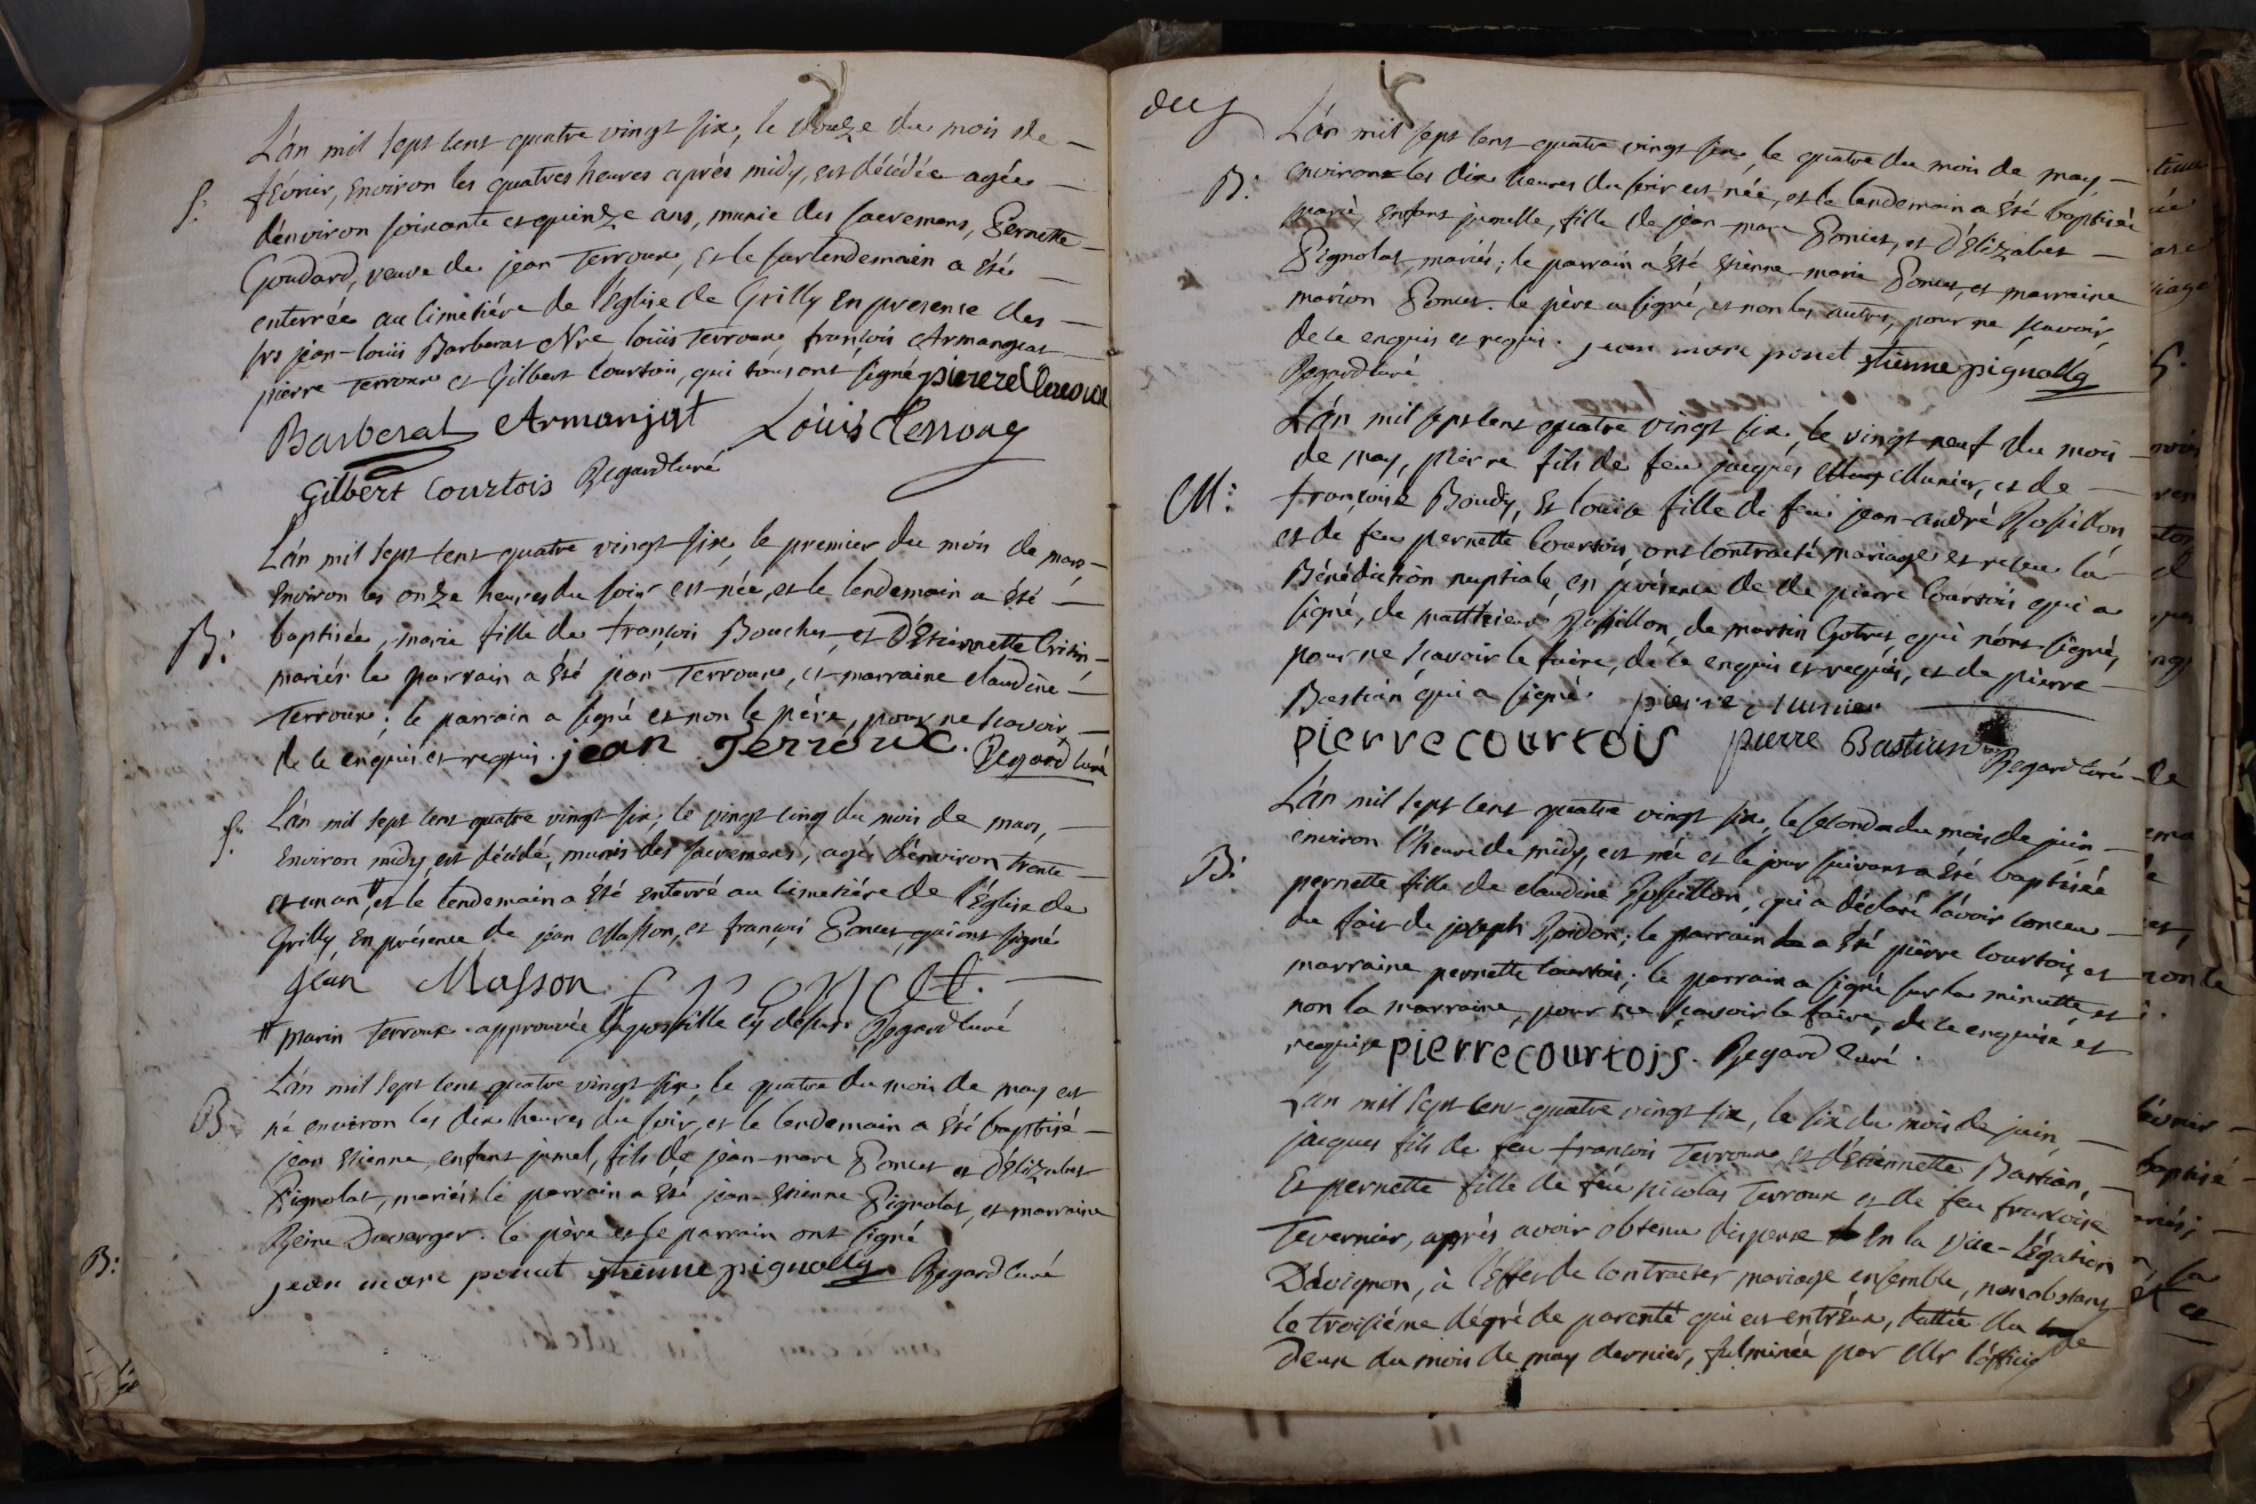 L'an mil sept cent quatre vingt six, le douze du mois de
S. février, environ les quatres heures après midy, est décédée agée
d'environ soixante et quinze ans, munie des sacremens, Pernette
Goudard, veuve de jean Terroux, et le surlendemain a été
enterrée au cimetiére de l'Eglise de Grilly en presense des
srs jean-louis Barberat Nre louis Terroux, françois Armangeat
pierre Terroux et Gilbert Courtois, qui tous ont signé pierre
Barberat Armanjat Louis Terroux
Gilbert Courtois Regard curé
L'an mil sept cent quatre vingt six, le premier du mois de mars
environ les onze heures du soir est née, et le lendemain a été
B: baptisée, marie fille de françois Bouchet, et d'Etiennette
mariés le parrain a été jean Terroux, et marraine claudine
Terroux; le parrain a signé et non le père, pour ne scavoir,
de ce enquis et requis. jean Terroux. Regard curé
S. L'an mil sept cent quatre vingt six, le vingt cinq du mois de mars,
Environ midy, est décédé, munis des sacremens, agé d'environ trente
et un an #, et le lendemain a été enterré au cimetiére de l'Eglise de
Grilly, en présence de jean Masson, et françois Poncet, qui ont signé
Jean Masson. f poncet.
# marin Terroux approuvée l'apostille cy dessus. Regard curé
L'an mil sept cent quatre vingt six, le quatre du mois de may est
B: né environ les dix heures du soir, et le lendemain a été baptisé
jean Etienne, enfant jumel, fils de jean-marc Poncet et d'Elizabet
Pignolat, mariés; le parrain a été jean-Etienne Pignolat, et marraine
Reine Duverger. le père et le parrain ont signé
B:
jean marc poncet etienne pignolly Regard curé
L'an mil sept cent quatre vingt six, le quatre du mois de may,
B: environ les dix heures du soir est née, et le lendemain a été baptisée
marie, enfant jumelle, fille de jean-marc Poncet, et d'Elizabet
Pignolat, mariés; le parrain a été Etienne-marie Poncet, et marraine
marion Poncet. le père a signé, et non les autres, pour ne scavoir,
de ce enquis et requis. jean marc poncet etienne pignolly
Regard curé
L'an mil sept cent quatre vingt six, le vingt neuf du mois
de may, pierre fils de feu jacques Munier, et de
M: françoise Boudy, et louise fille de feu jean-andré Rossillon,
et de feu pernette Courtois, ont contracté mariage et reçeu la
Bénédiction nuptiale, en présence de de pierre Courtois qui a
signé, de matthieu Rossillon, de martin Gotret, qui n'ont signé,
pour ne scavoir le faire, de ce enquis et requis, et de pierre
Bastian qui a signé. pierre munier
pierre courtois pierre Bastian Regard curé
L'an mil sept cent quatre vingt six, le second du mois de juin
environ l'heure de midy, est née et le jour suivant a été baptisée
B: pernette fille de claudine Rossillon, qui a déclaré l'avoir conceu
du fait de joseph Roidon; le parrain a été pierre courtois, et
marraine pernette courtois; le parrain a signé sur la minutte, et
non la marraine, pour ne scavoir le faire, de ce enquise et
requise pierre courtois. Regard curé.
L'an mil sept cent quatre vingt six, le six du mois de juin,
jacques fils de feu françois Terroux et d'Etiennette Bastian,
Et pernette fille de feu nicolas Terroux et de feu françoise
Tavernier, après avoir obtenu dispense en la Vice-légation
D'avignon, à l'effet de contracter mariage ensemble, nonobstant
le troisiéme dégré de parenté qui est entr'Eux, dattée du
deux du mois de may dernier, fulminée par Mr l'official de